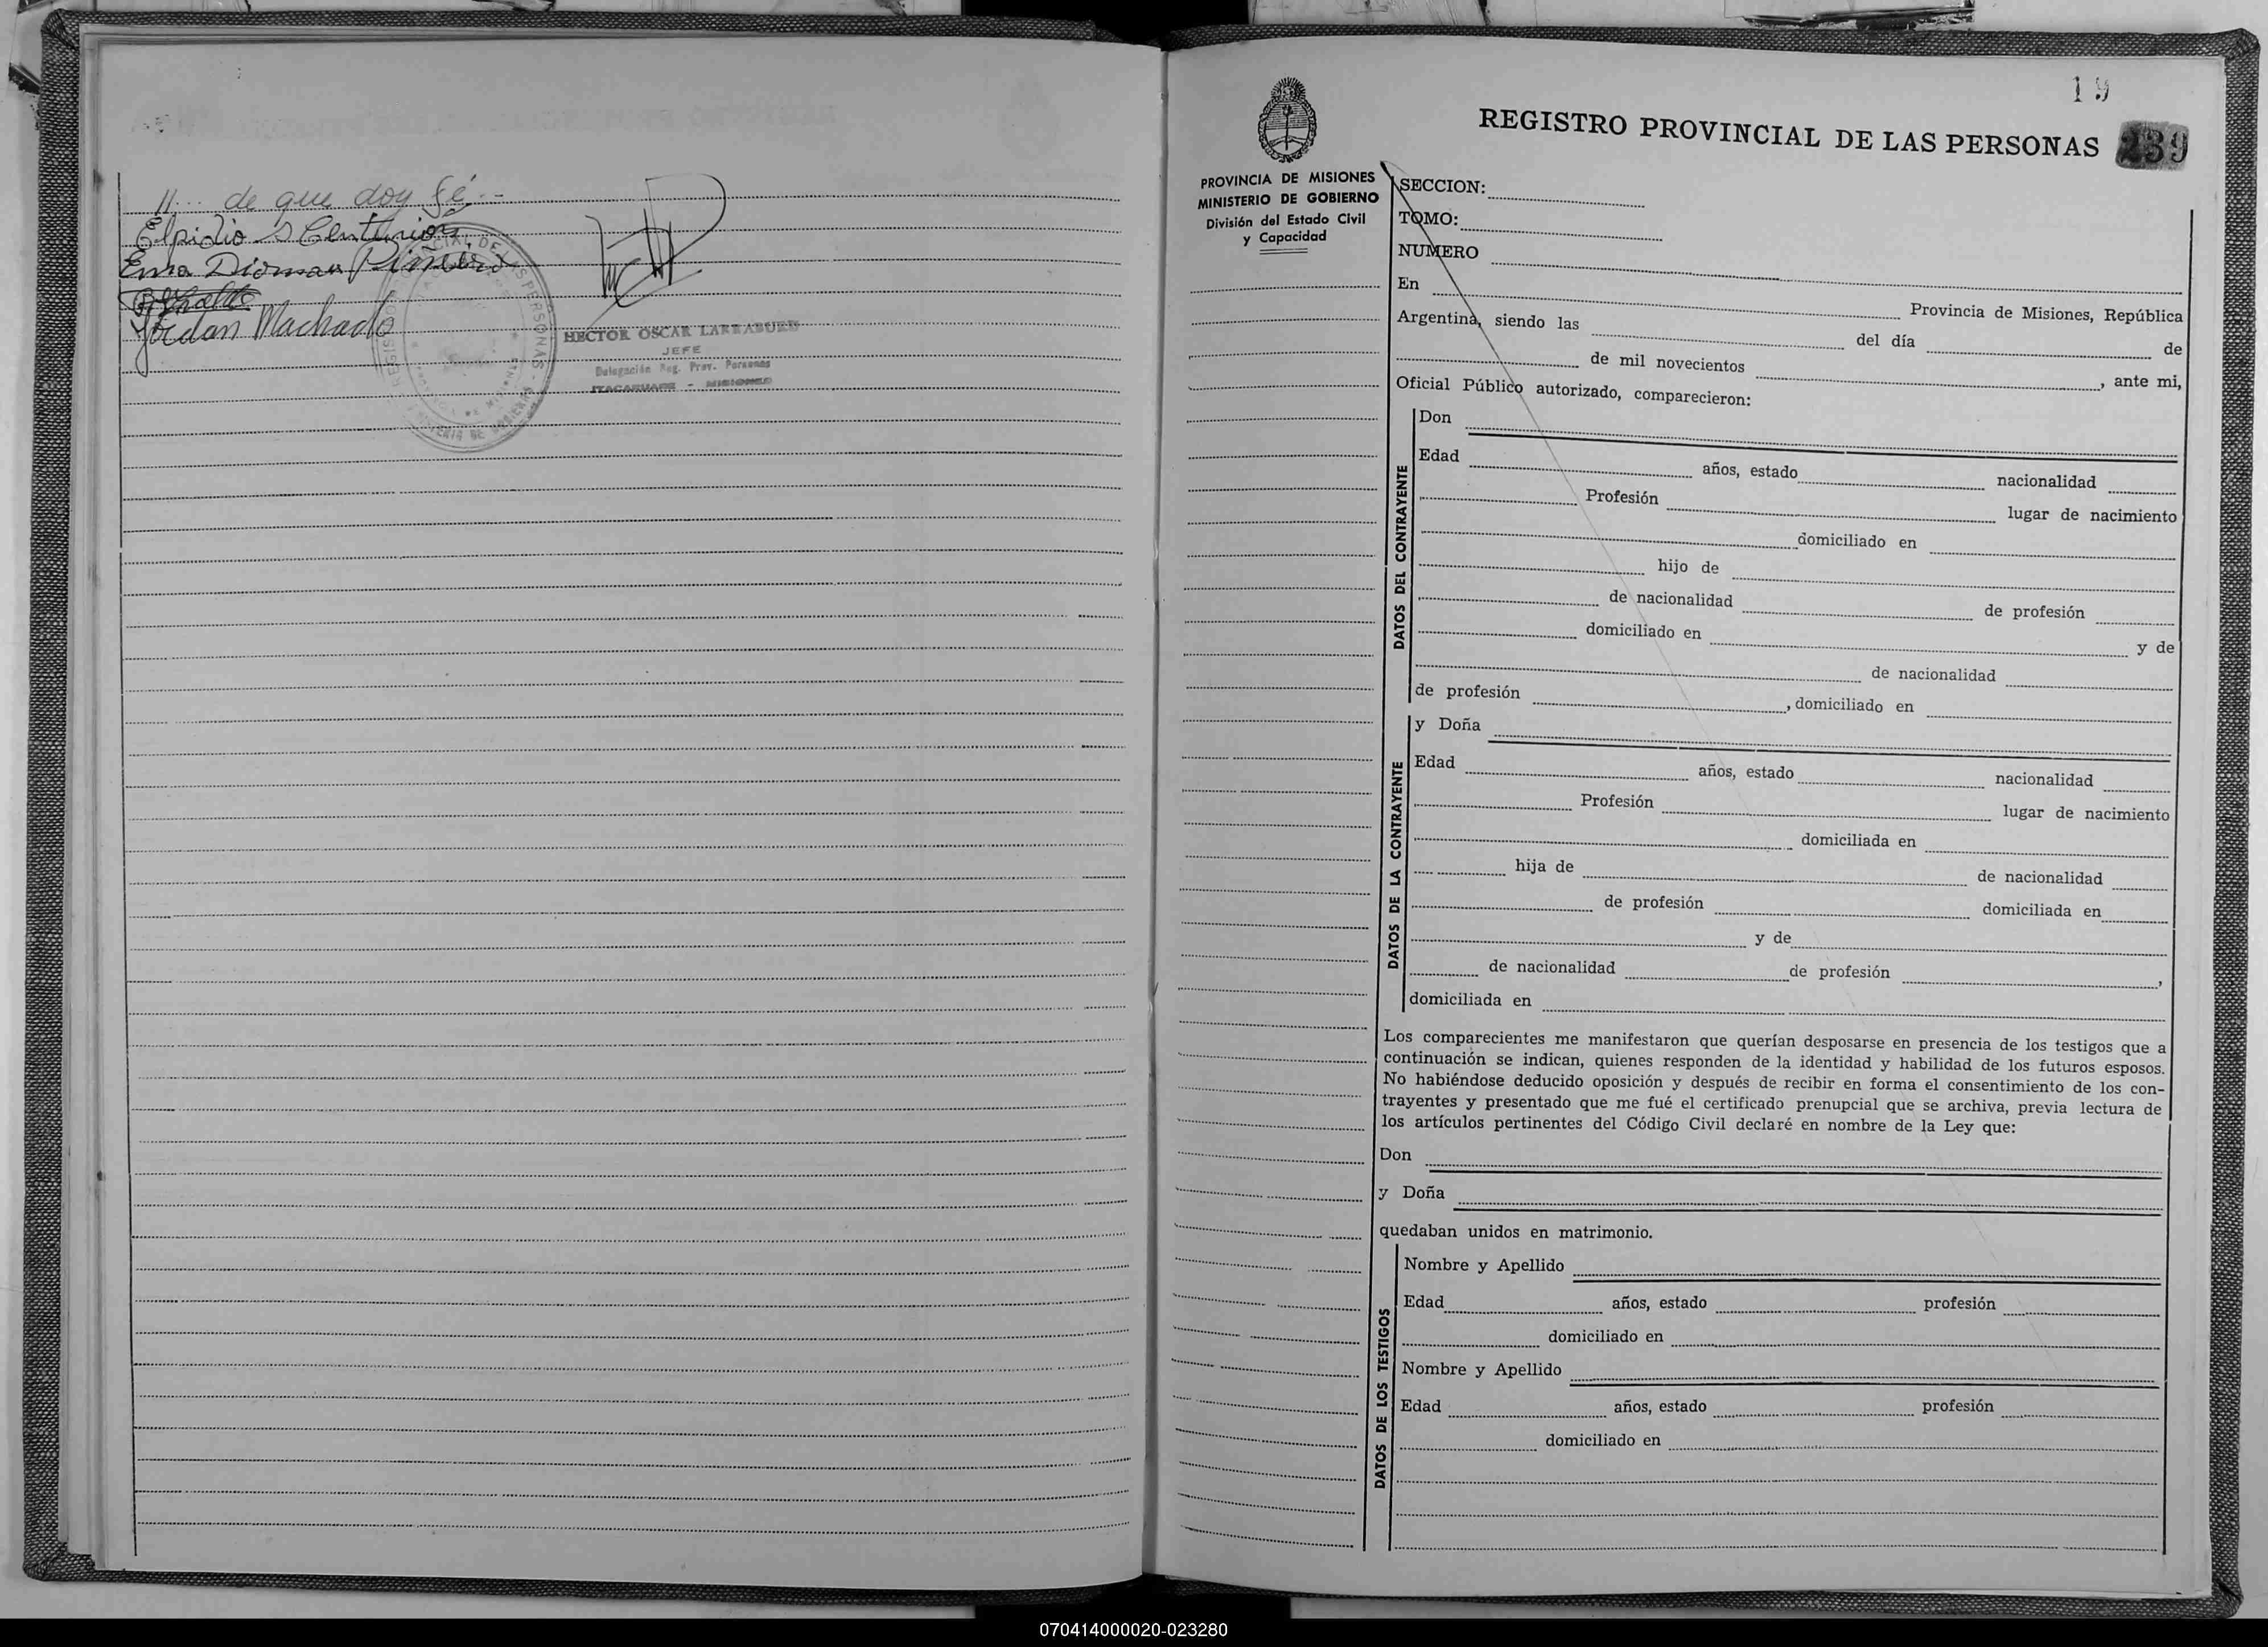 //... de que doy fé.-
Elpidio S Centurión
Ema Dioman Pimiero
Jordan Machado
HECTOR OSCAR LARRABURE
JEFE
Delegación Reg. Prov. Personas
ITACARUARE - MISIONES
19
REGISTRO PROVINCIAL DE LAS PERSONAS 239
PROVINCIA DE MISIONES
MINISTERIO DE GOBIERNO
División del Estado Civil
y Capacidad
SECCION:
TOMO:
NUMERO
En Provincia de Misiones, República
Argentina, siendo las del día de
de mil novecientos , ante mi,
Oficial Público autorizado, comparecieron:
DATOS DEL CONTRAYENTE
Don
Edad años, estado nacionalidad
Profesión lugar de nacimiento
domiciliado en
hijo de
de nacionalidad de profesión
domiciliado en y de
de nacionalidad
de profesión , domiciliado en
DATOS DE LA CONTRAYENTE
y Doña
Edad años, estado nacionalidad
Profesión lugar de nacimiento
domiciliada en
hija de de nacionalidad
de profesión domiciliada en
y de
de nacionalidad de profesión ,
domiciliada en
Los comparecientes me manifestaron que querían desposarse en presencia de los testigos que a
continuación se indican, quienes responden de la identidad y habilidad de los futuros esposos.
No habiéndose deducido oposición y después de recibir en forma el consentimiento de los con-
trayentes y presentado que me fué el certificado prenupcial que se archiva, previa lectura de
los artículos pertinentes del Código Civil declaré en nombre de la Ley que:
Don
y Doña
quedaban unidos en matrimonio.
DATOS DE LOS TESTIGOS
Nombre y Apellido
Edad años, estado profesión
domiciliado en
Nombre y Apellido
Edad años, estado profesión
domiciliado en
070414000020-023280